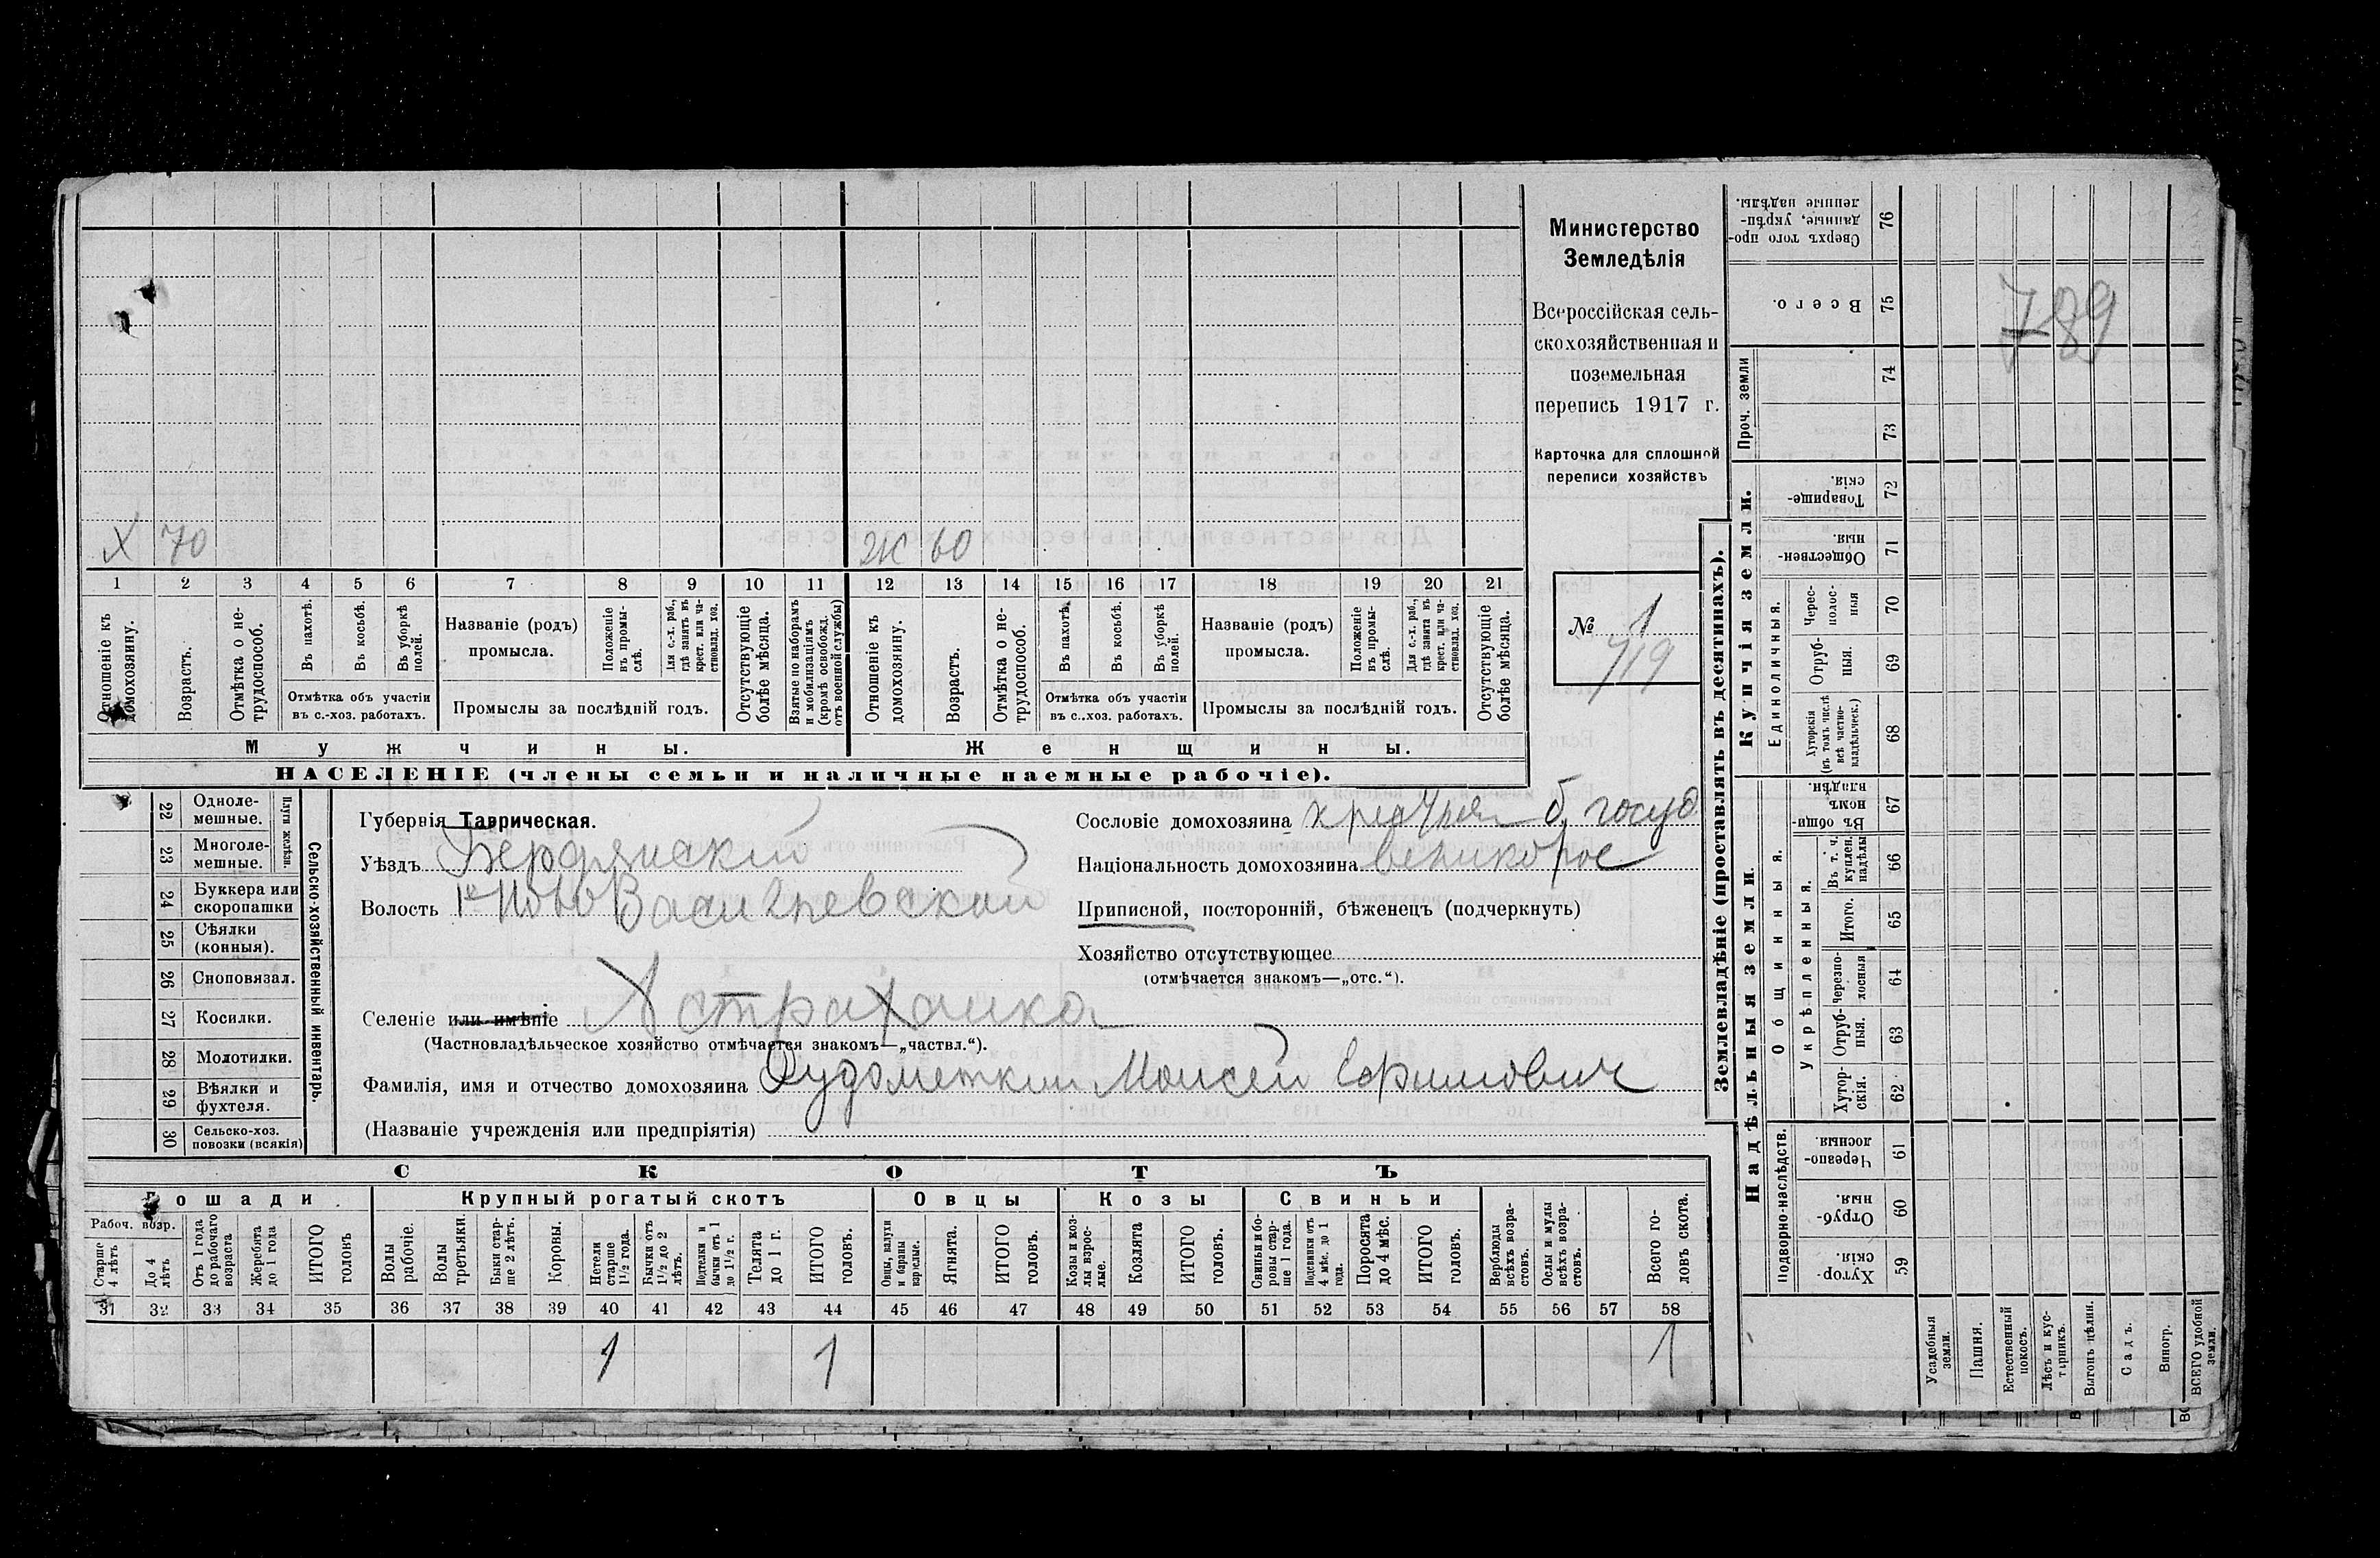 Х 70 Ж 60
1 2 3 4 5 6 7 8 9 10 11 12 13 14 15 16 17 18 19 20 21
Отношеніе къ домохозяину.
Возрастъ.
Отмѣтка о не-трудоспособ.
Въ пахотѣ.
Въ косьбѣ.
Въ уборкѣ полей.
Отмѣтка объ участіи
въ с.-хоз. работахъ.
Названіе (родъ)
промысла.
Положеніе въ промы-слѣ.
Для с.-х. раб., гдѣ занятъ въ крест. или ча-ствовлад. хоз.
Промыслы за послѣдній годъ.
Отсутствующіе болѣе мѣсяца.
Взятые по наборамъ и мобилизаціямъ (кромѣ освобожд. отъ военной службы)
Отношеніе къ домохозяину.
Возрастъ.
Отмѣтка о не-трудоспособ.
Въ пахотѣ.
Въ косьбѣ.
Въ уборкѣ полей.
Отмѣтка объ участіи
въ с.-хоз. работахъ.
Названіе (родъ)
промысла.
Положеніе въ промы-слѣ.
Для с.-х. раб., гдѣ занята въ крест. или ча-ствовлад. хоз.
Промыслы за послѣдній годъ.
Отсутствующіе болѣе мѣсяца.
Мужчины. Женщины.
НАСЕЛЕНІЕ (члены семьи и наличные наемные рабочіе).
Министерство
Земледѣлія
Всероссійская сель-
скохозяйственная и
поземельная
перепись 1917 г.
Карточка для сплошной
переписи хозяйствъ
№ 1
719
22 Одноле-мешные.
23 Многоле-мешные.
Плуги желѣзн.
24 Буккера или скоропашки
25 Сѣялки (конныя).
26 Сноповязал.
27 Косилки.
28 Молотилки.
29 Вѣялки и фухтеля.
30 Сельско-хоз. повозки (всякія)
Сельско-хозяйственный инвентарь.
Губернія Таврическая.
Уѣздъ Бердянскій
Волость 1я Ново Васильевской
Селеніе или имѣніе Астраханка
(Частновладѣльческое хозяйство отмѣчается знакомъ—„частвл.“).
Фамилія, имя и отчество домохозяина Рудометкин Моисей Ефимович
(Названіе учрежденія или предпріятія)
Сословіе домохозяина б. госуд
Національность домохозяина великорос
Приписной, посторонній, бѣженецъ (подчеркнуть)
Хозяйство отсутствующее
(отмѣчается знакомъ—„отс.“).
СКОТЪ
Лошади Крупный рогатый скотъ Овцы Козы Свиньи
Рабоч. возр.
Старше 4 лѣтъ
До 4 лѣтъ
Отъ 1 года до рабочаго возраста
Жеребята до 1 года
ИТОГО головъ
Волы рабочіе.
Волы третьяки.
Быки стар-ше 2 лѣтъ.
Коровы.
Нетели старше 1½ года.
Бычки отъ 1½ до 2 лѣтъ.
Подтелки и бычки отъ 1 до 1½ г.
Телята до 1 г.
ИТОГО головъ.
Овцы, валухи и бараны взрослые.
Ягнята.
ИТОГО головъ.
Козы и коз-лы взрос-лые.
Козлята
ИТОГО головъ.
Свиньи и бо-ровы стар-ше 1 года.
Подсвинки отъ 4 мѣс. до 1 года.
Поросята до 4 мѣс.
ИТОГО головъ.
Верблюды всѣхъ возра-стовъ.
Ослы и мулы всѣхъ возра-стовъ.
Всего го-ловъ скота.
31 32 33 34 35 36 37 38 39 40 41 42 43 44 45 46 47 48 49 50 51 52 53 54 55 56 57 58
1 1 1
Землевладѣніе (проставлять въ десятинахъ).
Сверхъ того про-данные, укрѣп-ленные надѣлы. 76
Всего. 75
Проч. земли 74
73
Купчія земли.
Товарище-скія. 72
Обществен-ныя. 71
Единоличныя.
Черес-полос-ныя 70
Отруб-ныя. 69
Хуторскія (въ томъ числѣ всѣ частно-владѣльческ.) 68
Надѣльныя земли.
Общинныя.
Въ общин-номъ владѣн. 67
Укрѣпленныя.
Въ т. ч. куплен. надѣлы 66
Итого. 65
Черезпо-лосныя 64
Отруб-ныя. 63
Хутор-скія. 62
Подворно-наслѣдств.
Черезпо-лосныя. 61
Отруб-ныя. 60
Хутор-скія. 59
Усадебныя земли.
Пашня.
Естественный покосъ.
Лѣсъ и кус-тарникъ.
Выгонъ цѣлин.
Садъ.
Виногр.
ВСЕГО удобной земли.
789